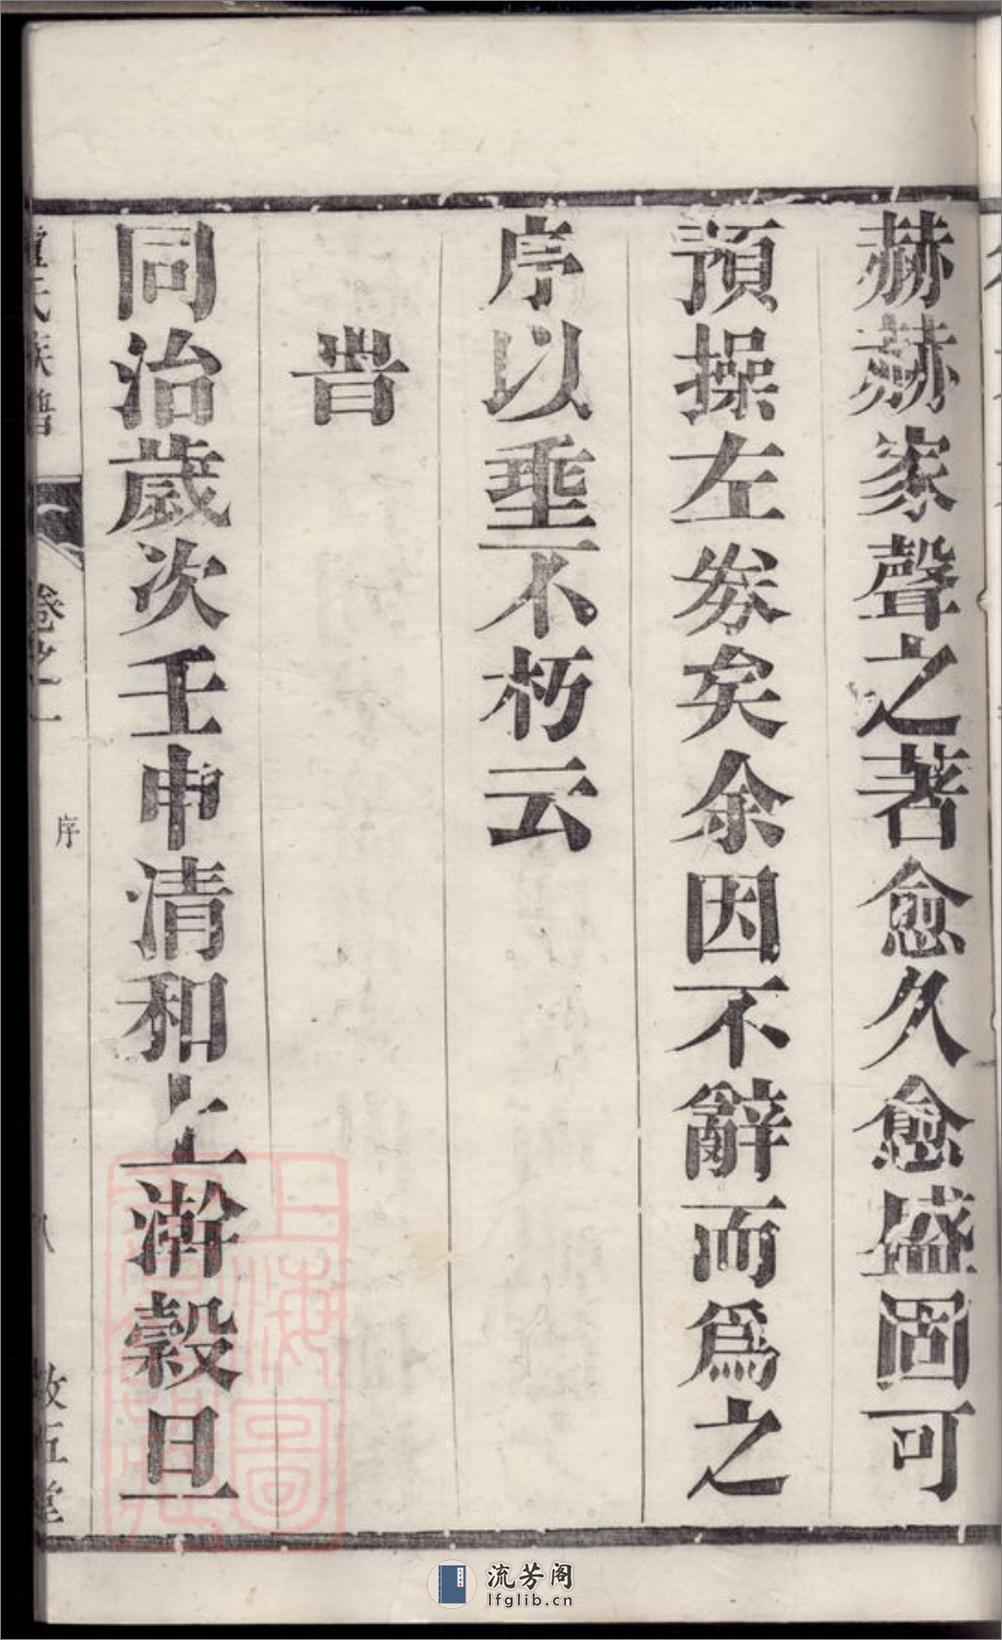 赫赫家聲之著愈久愈盛固可
預操左券矣余因不辭而爲之
序以垂不朽云
旹
同治歲次壬申清和上澣穀旦
氏族譜
卷之一
序
八
敦五堂
上海圖
流芳阁
lfglib.cn